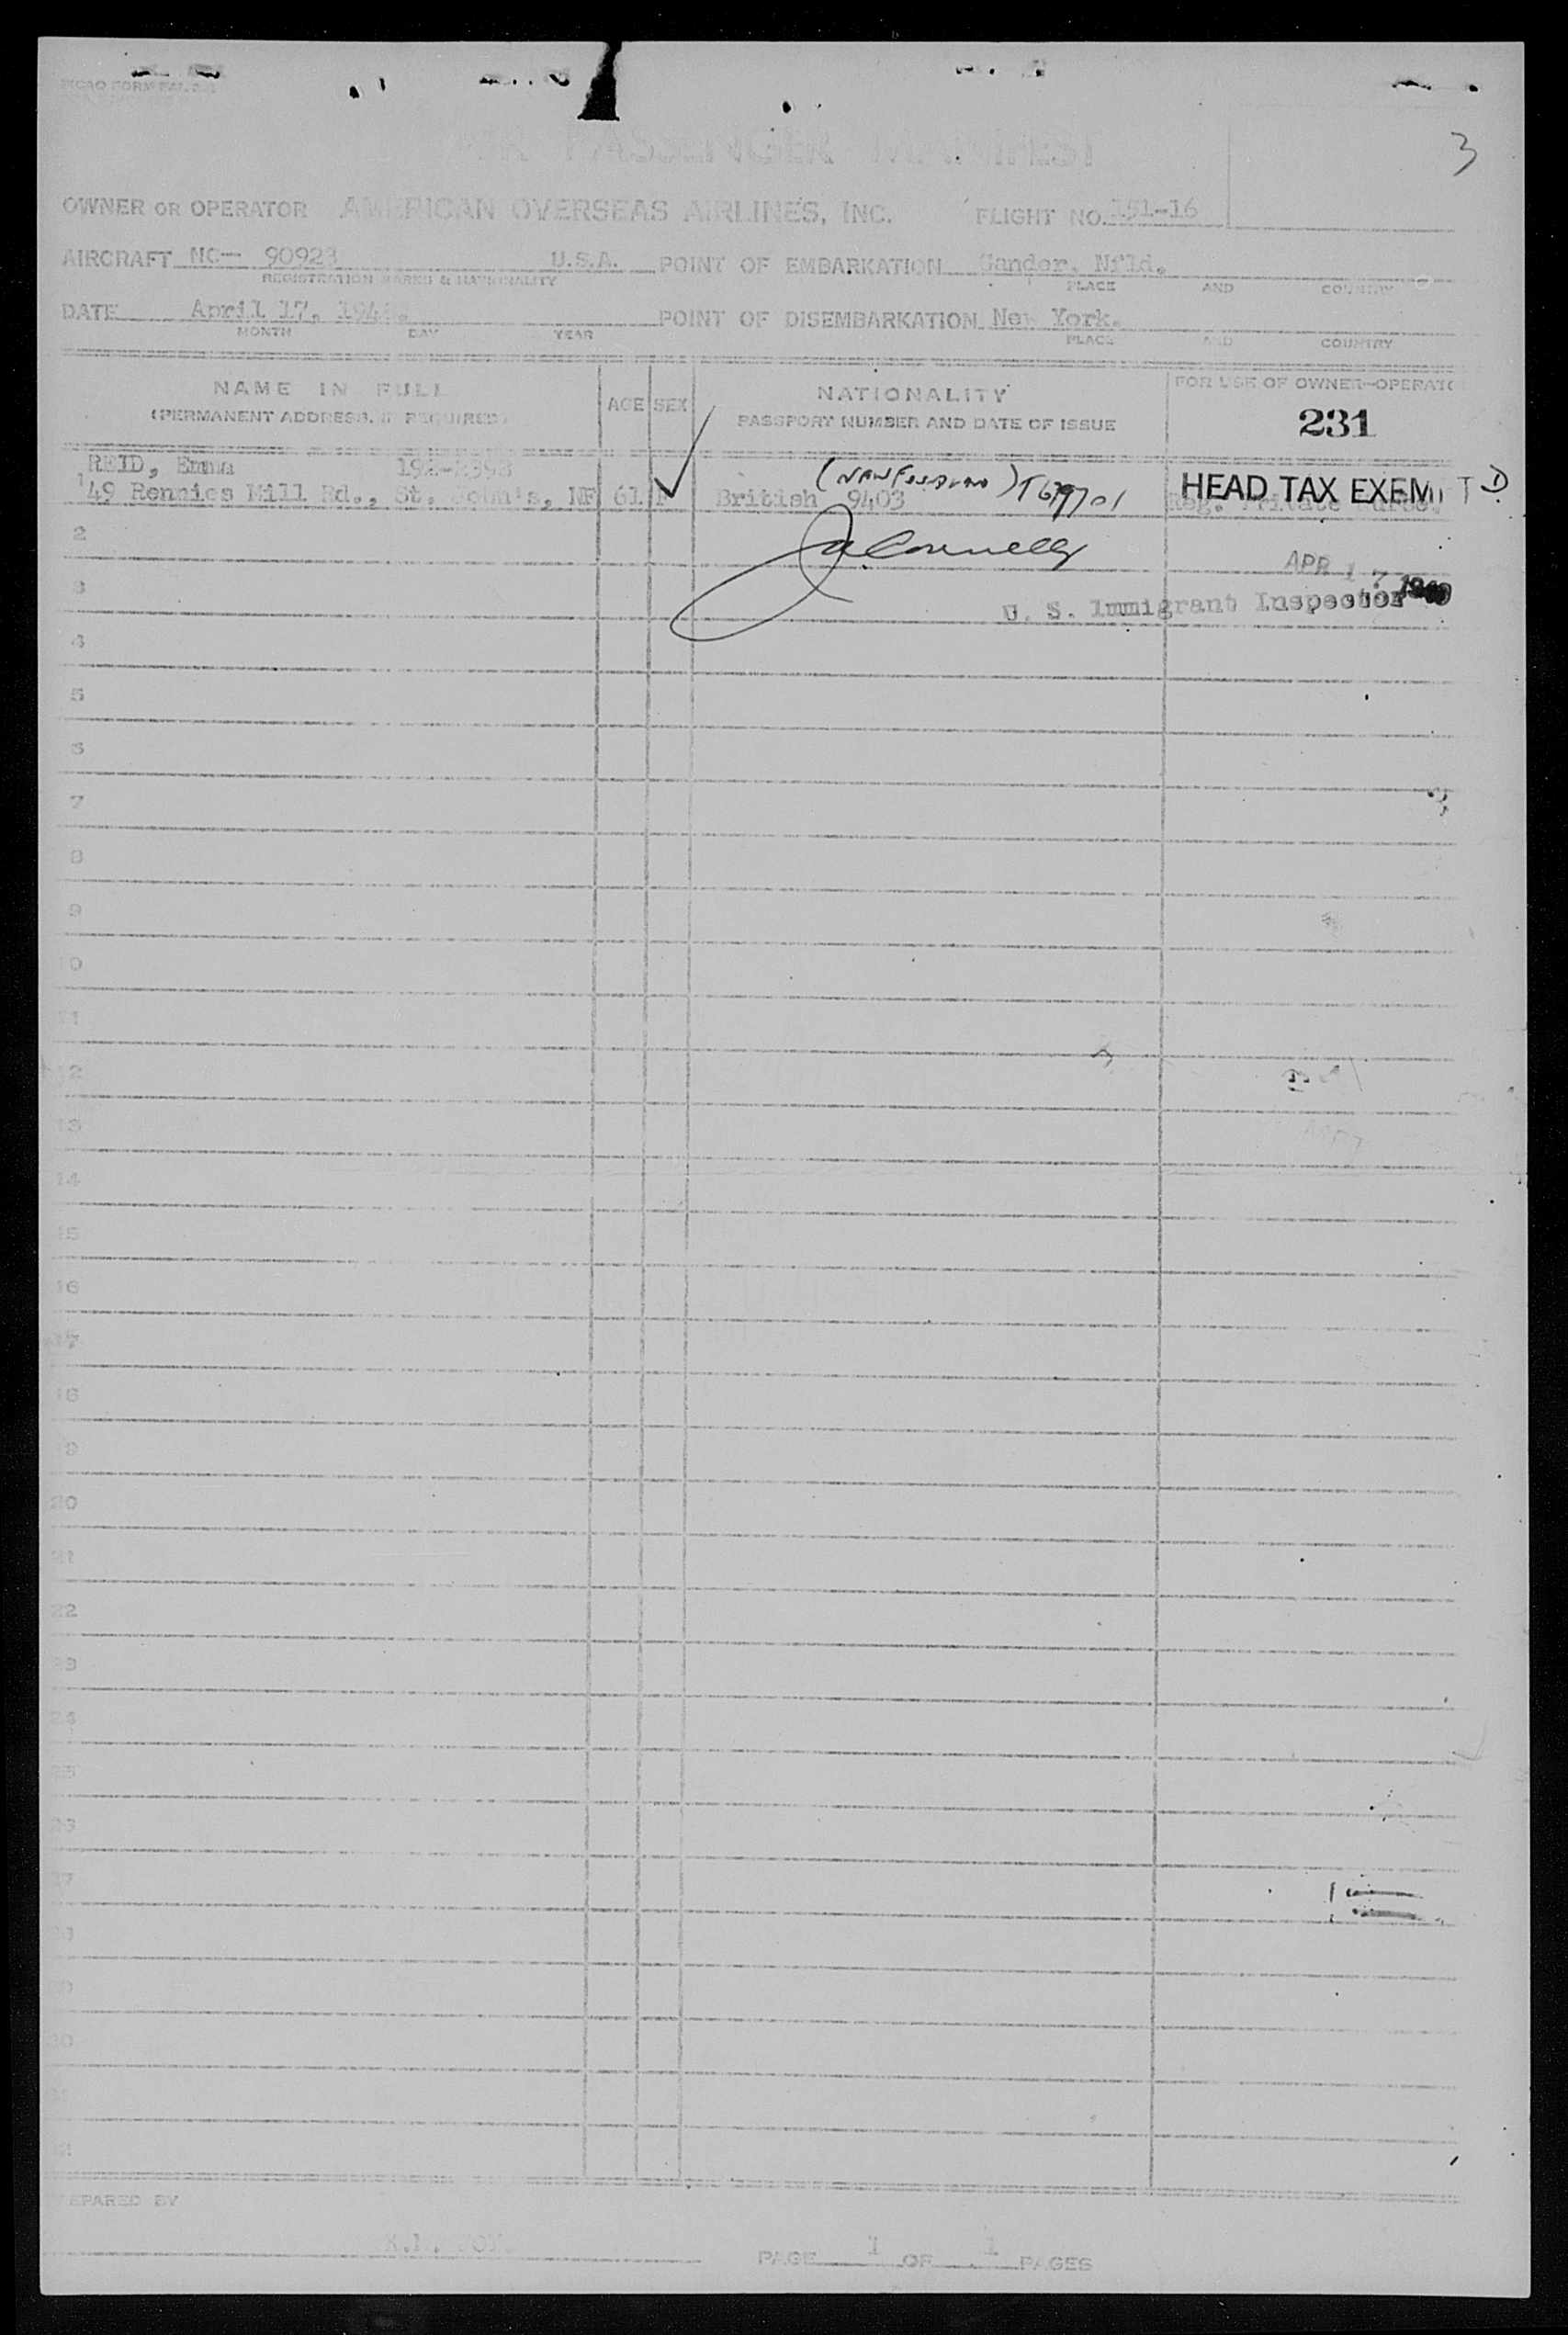 3
AIR PASSENGER MANIFEST
OWNER OR OPERATOR AMERICAN OVERSEAS AIRLINES, INC. FLIGHT NO. 151-16
AIRCRAFT NC- 90923 U.S.A. POINT OF EMBARKATION Gander, Nfld.
REGISTRATION MARKS & NATIONALITY PLACE AND COUNTRY
DATE April 17, POINT OF DISEMBARKATION New York.
MONTH DAY YEAR PLACE AND COUNTRY
NAME IN FULL
(PERMANENT ADDRESS, IF REQUIRED)
AGE SEX
NATIONALITY
PASSPORT NUMBER AND DATE OF ISSUE
FOR USE OF OWNER-OPERATO
231
REID, Emma
1 49 Rennies Mill Rd., St. John's, NF 61 F British 9403 T679701 HEAD TAX EXEMPT D
Reg. Private Nurse.
2 J. Connelly
APR 17
3 U. S. Immigrant Inspector
4
5
6
7
8
9
10
11
12
13
14
15
16
17
18
19
20
21
22
23
24
25
26
27
PREPARED BY
PAGE 1 OF 1 PAGES